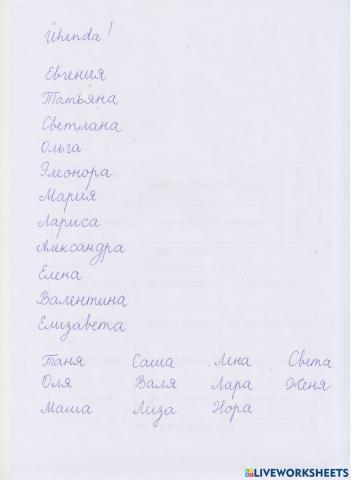 Ühenda!
Евгения
Татьяна
Светлана
Ольга
Элеонора
Мария
Лариса
Александра
Елена
Валентина
Елизавета
Таня Саша Лена Света
Оля Валя Лара Женя
Маша Лиза Нора
LIVEWORKSHEETS